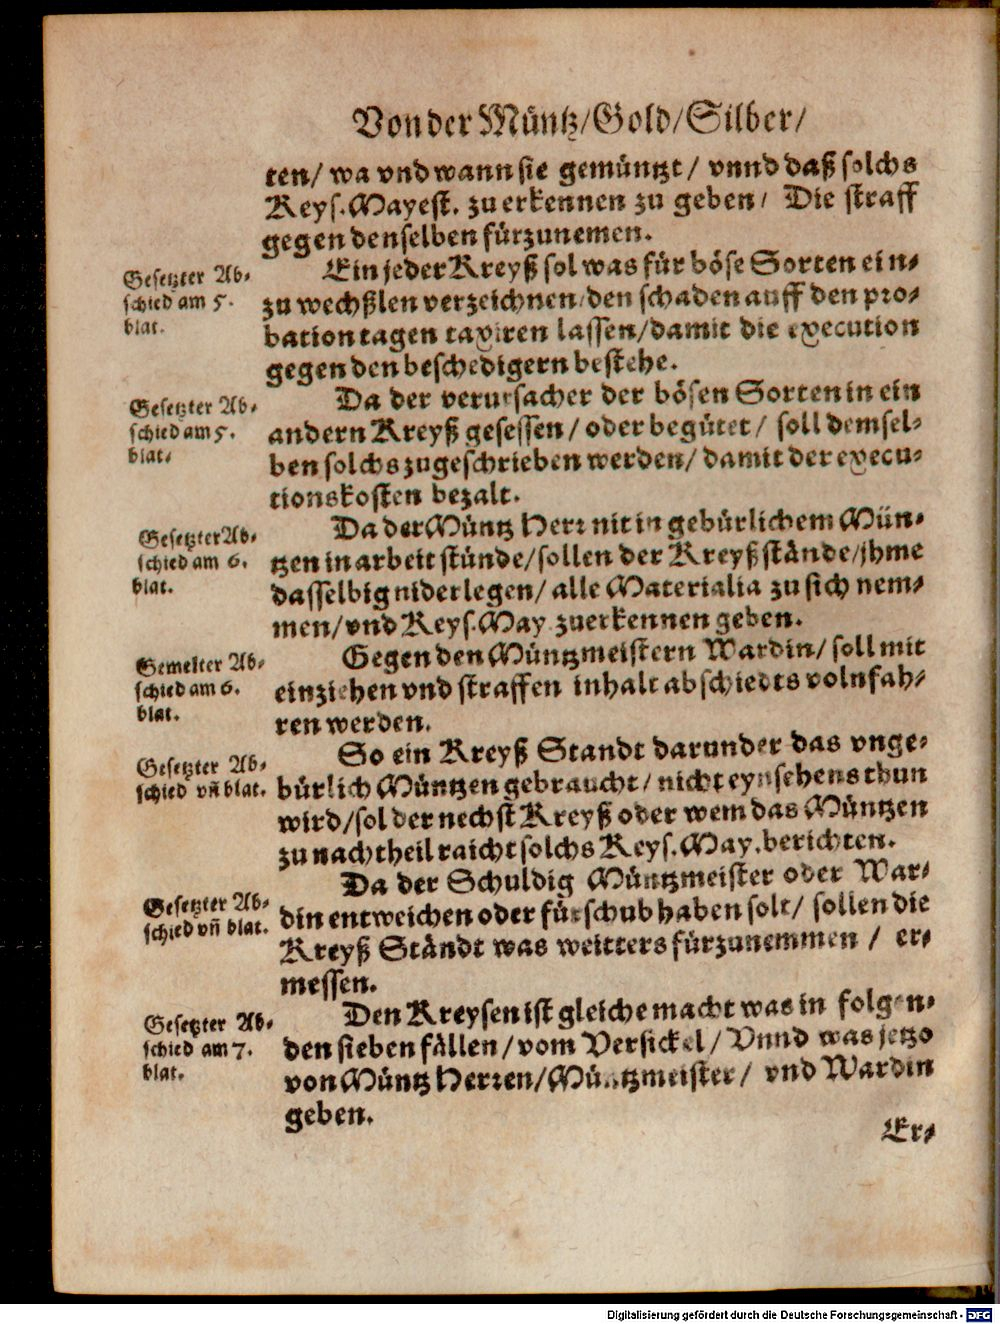 Von der Müntz/Gold/Silber/
ten/ wa vnd wann sie gemüntzt/ vnnd daß solchs
Keys. Mayest. zu erkennen zu geben/ Die straff
gegen denselben fürzunemen.
Gesetzter Ab-
schied am 5.
blat.
Ein jeder Kreyß sol was für böse Sorten ein-
zu wechßlen verzeichnen/den schaden auff den pro-
bation tagen taxiren lassen/damit die execution
gegen den beschedigern bestehe.
Gesetzter Ab-
schied am 5.
blat.
Da der verursacher der bösen Sorten in ein
andern Kreyß gesessen/ oder begütet/ soll demsel-
ben solchs zugeschrieben werden/ damit der execu-
tionskosten bezalt.
Gesetzter Ab-
schied am 6.
blat.
Da der Müntz Herr nit in gebürlichem Mün-
tzen in arbeit stünde/sollen der Kreyß stände/jhme
dasselbig niderlegen/ alle Materialia zu sich nem-
men/vnd Keys. May. zuerkennen geben.
Gemelter Ab-
schied am 6.
blat.
Gegen den Müntzmeistern Wardin/ soll mit
einziehen vnd straffen inhalt abschiedts volnfah-
ren werden.
Gesetzter Ab-
schied vñ blat.
So ein Kreyß Standt darunder das vnge-
bürlich Müntzen gebraucht/ nicht eynsehens thun
wird/sol der nechst Kreyß oder wem das Müntzen
zu nachtheil raicht solchs Keys. May. berichten.
Gesetzter Ab-
schied vñ blat.
Da der Schuldig Müntzmeister oder War-
din entweichen oder fürschub haben solt/ sollen die
Kreyß Ständt was weitters fürzunemmen / er-
messen.
Gesetzter Ab-
schied am 7.
blat.
Den Kreysen ist gleiche macht was in folgen-
den sieben fällen/vom Versickel/ Vnnd was jetzo
von Müntz Herren/Müntzmeister/ vnd Wardin
geben.
Er-
Digitalisierung gefördert durch die Deutsche Forschungsgemeinschaft - DFG